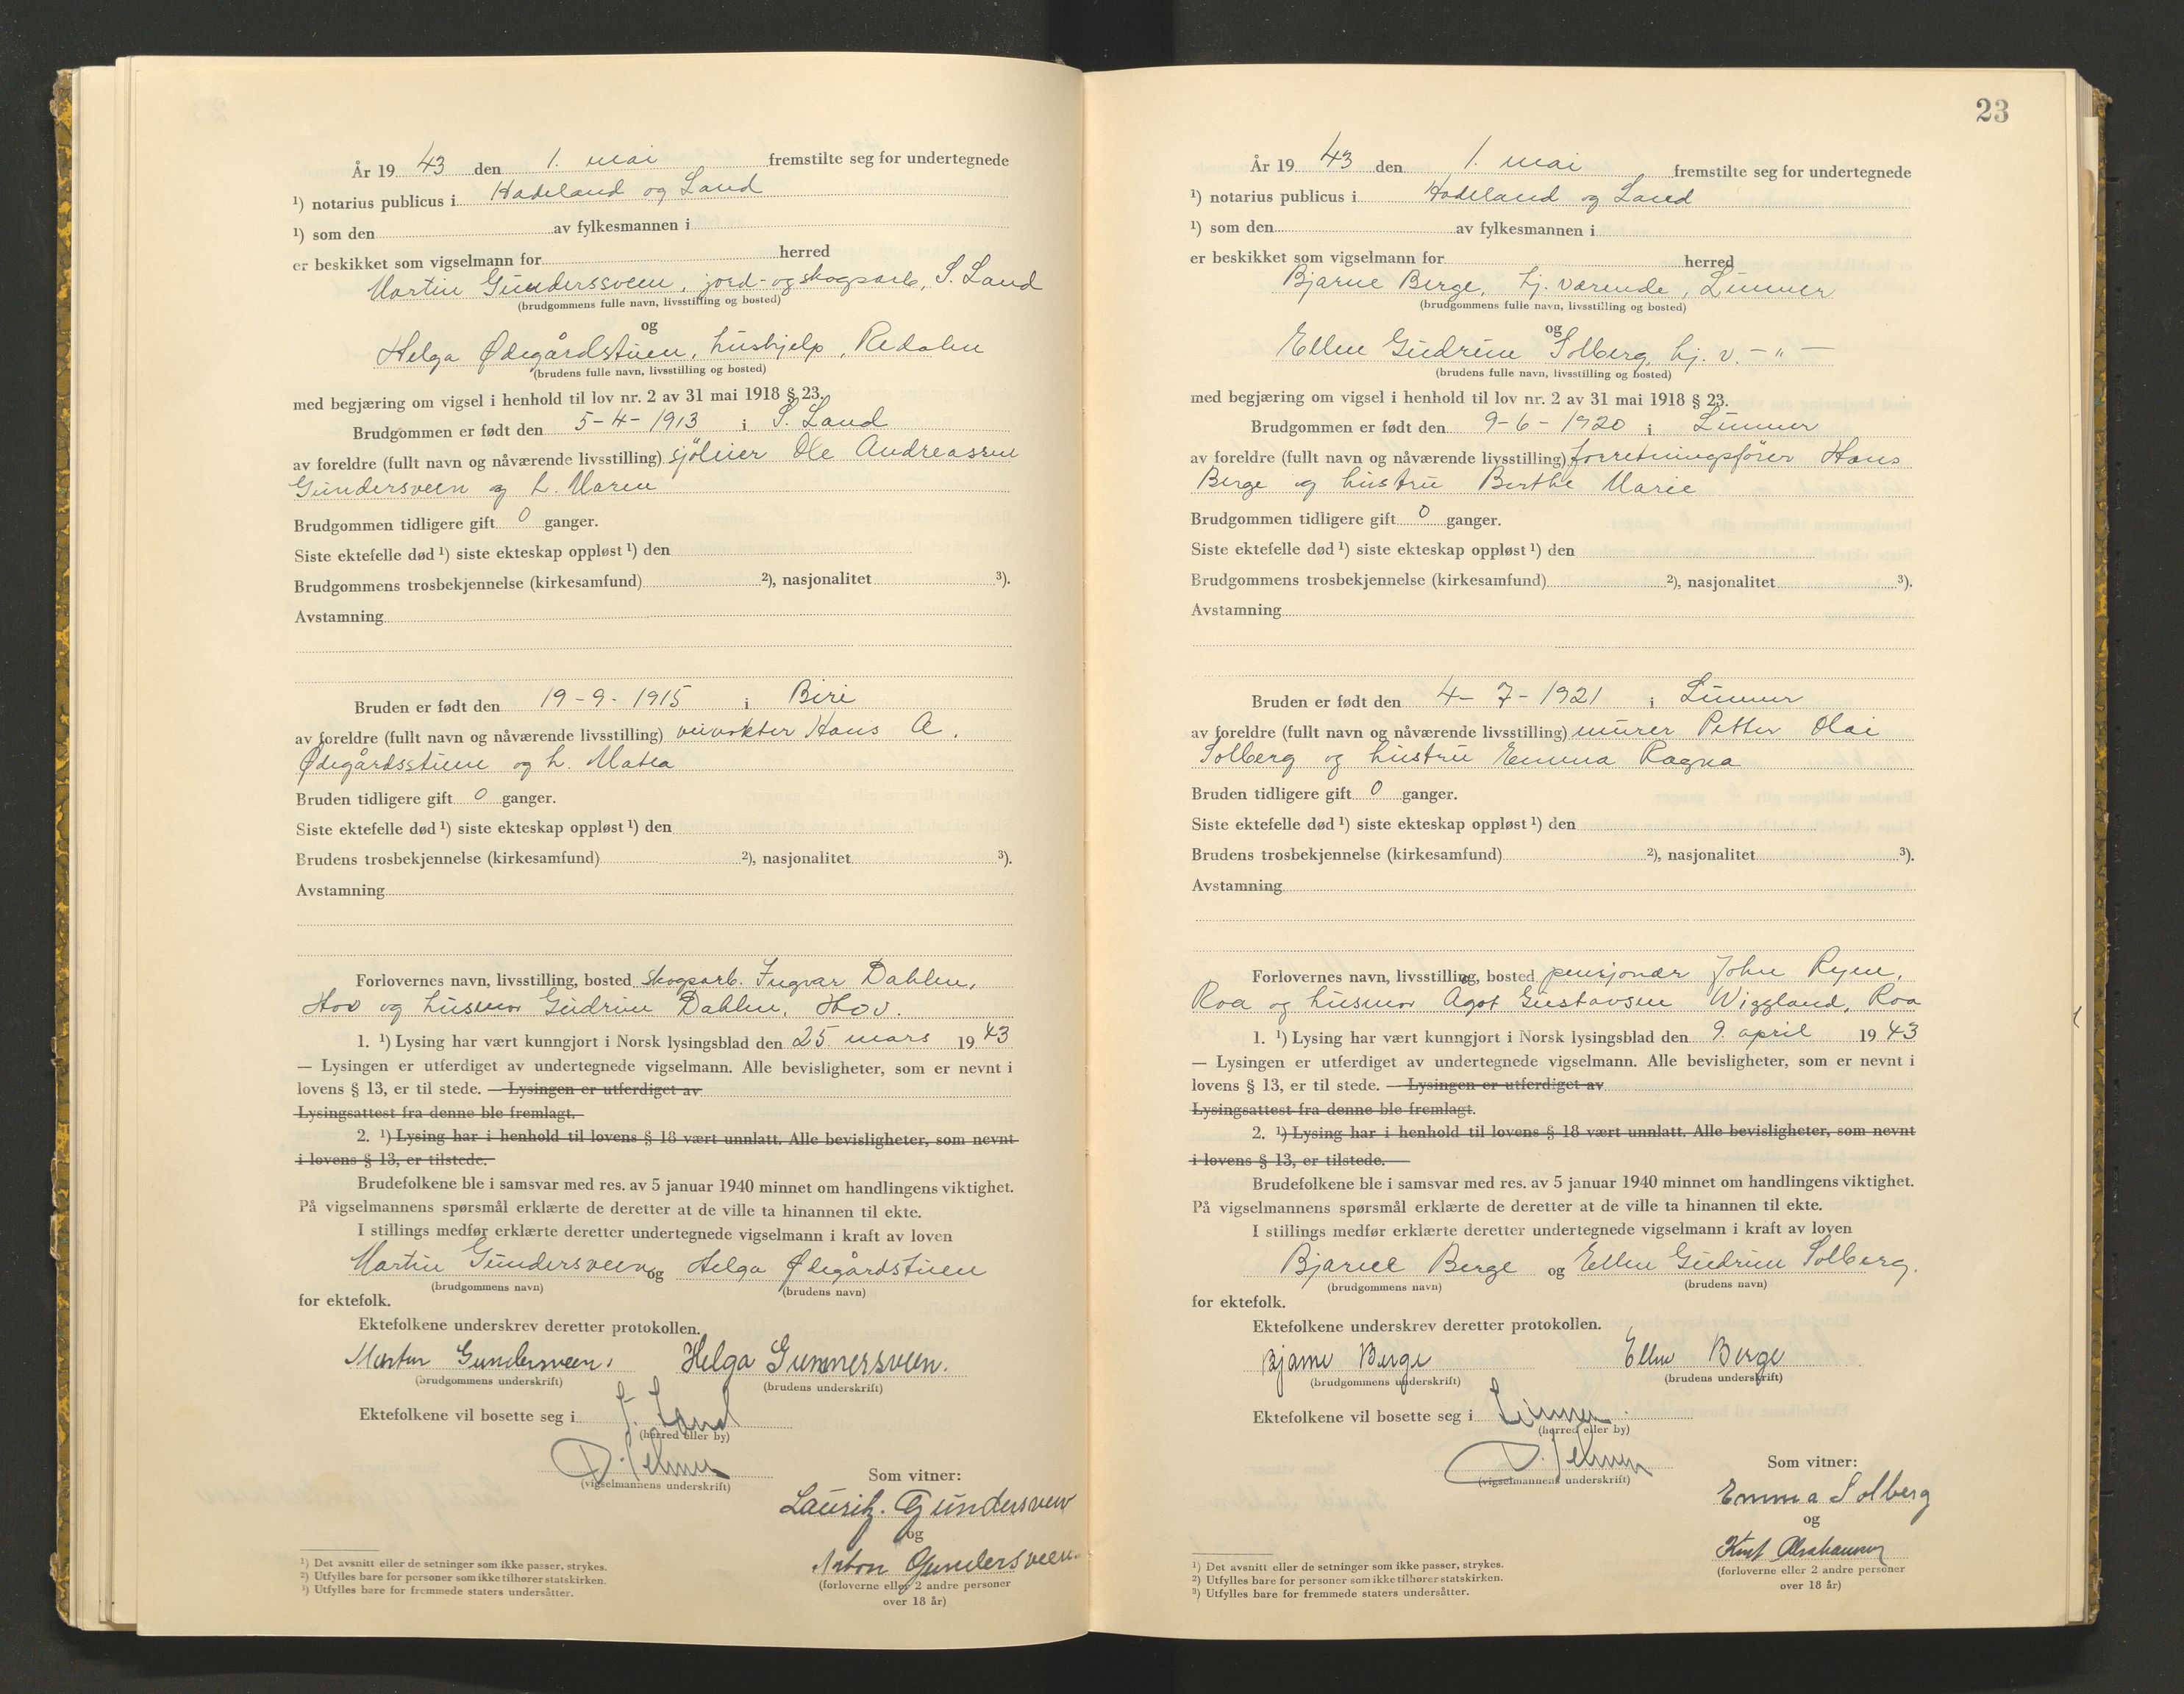 År 19 43 den 1. mai fremstilte seg for undertegnede
¹) notarius publicus i Hadeland og Land
¹) som den av fylkesmannen i
er beskikket som vigselmann for herred
Martin Gunderssveen, jord- og skogsarb, S. Land
(brudgommens fulle navn, livsstilling og bosted)
og
Helga Ødegårdstuen, hushjelp, Redalen
(brudens fulle navn, livsstilling og bosted)
med begjæring om vigsel i henhold til lov nr. 2 av 31 mai 1918 § 23.
Brudgommen er født den 5-4-1913 i S. Land
av foreldre (fullt navn og nåværende livsstilling) sjøleier Ole Andreassen
Gundersveen og h. Maren
Brudgommen tidligere gift 0 ganger.
Siste ektefelle død ¹) siste ekteskap oppløst ¹) den
Brudgommens trosbekjennelse (kirkesamfund) ²), nasjonalitet ³).
Avstamning
Bruden er født den 19-9-1915 i Biri
av foreldre (fullt navn og nåværende livsstilling) veivokter Hans A.
Ødegårdsstuen og h. Matea
Bruden tidligere gift 0 ganger.
Siste ektefelle død ¹) siste ekteskap oppløst ¹) den
Brudens trosbekjennelse (kirkesamfund) ²), nasjonalitet ³).
Avstamning
Forlovernes navn, livsstilling, bosted skogsarb. Ingvar Dahlen,
Hov og husmor Gudrun Dahlen, Hov.
1. ¹) Lysing har vært kunngjort i Norsk lysingsblad den 25. mars 19 43
— Lysingen er utferdiget av undertegnede vigselmann. Alle bevisligheter, som er nevnt i
lovens § 13, er til stede. — Lysingen er utferdiget av
Lysingsattest fra denne ble fremlagt.
2. ¹) Lysing har i henhold til lovens § 18 vært unnlatt. Alle bevisligheter, som nevnt
i lovens § 13, er tilstede.
Brudefolkene ble i samsvar med res. av 5 januar 1940 minnet om handlingens viktighet.
På vigselmannens spørsmål erklærte de deretter at de ville ta hinannen til ekte.
I stillings medfør erklærte deretter undertegnede vigselmann i kraft av loven
Martin Gundersveen og Helga Ødegårdstuen
(brudgommens navn) (brudens navn)
for ektefolk.
Ektefolkene underskrev deretter protokollen.
Martin Gundersveen. Helga Gunnersveen.
(brudgommens underskrift) (brudens underskrift)
Ektefolkene vil bosette seg i S. Land
(herred eller by)
(vigselmannens underskrift)
Som vitner:
Lauritz. Gundersveen
og
Anton Gundersveen
(forloverne eller 2 andre personer
over 18 år)
¹) Det avsnitt eller de setninger som ikke passer, strykes.
²) Utfylles bare for personer som ikke tilhører statskirken.
³) Utfylles bare for fremmede staters undersåtter.
23
År 19 43 den 1. mai fremstilte seg for undertegnede
¹) notarius publicus i Hadeland og Land
¹) som den av fylkesmannen i
er beskikket som vigselmann for herred
Bjarne Berge, hj. værende, Lunner
(brudgommens fulle navn, livsstilling og bosted)
og
Ellen Gudrun Solberg, hj. v. — " —
(brudens fulle navn, livsstilling og bosted)
med begjæring om vigsel i henhold til lov nr. 2 av 31 mai 1918 § 23.
Brudgommen er født den 9-6-1920 i Lunner
av foreldre (fullt navn og nåværende livsstilling) forretningsfører Hans
Berge og hustru Berthe Marie
Brudgommen tidligere gift 0 ganger.
Siste ektefelle død ¹) siste ekteskap oppløst ¹) den
Brudgommens trosbekjennelse (kirkesamfund) ²), nasjonalitet ³).
Avstamning
Bruden er født den 4-7-1921 i Lunner
av foreldre (fullt navn og nåværende livsstilling) murer Petter Olai
Solberg og hustru Emma Ragna
Bruden tidligere gift 0 ganger.
Siste ektefelle død ¹) siste ekteskap oppløst ¹) den
Brudens trosbekjennelse (kirkesamfund) ²), nasjonalitet ³).
Avstamning
Forlovernes navn, livsstilling, bosted pensjonær John Ryen,
Roa og husmor Ågot Gustavsen Wiggland, Roa
1. ¹) Lysing har vært kunngjort i Norsk lysingsblad den 9. april 19 43
— Lysingen er utferdiget av undertegnede vigselmann. Alle bevisligheter, som er nevnt i
lovens § 13, er til stede. — Lysingen er utferdiget av
Lysingsattest fra denne ble fremlagt.
2. ¹) Lysing har i henhold til lovens § 18 vært unnlatt. Alle bevisligheter, som nevnt
i lovens § 13, er tilstede.
Brudefolkene ble i samsvar med res. av 5 januar 1940 minnet om handlingens viktighet.
På vigselmannens spørsmål erklærte de deretter at de ville ta hinannen til ekte.
I stillings medfør erklærte deretter undertegnede vigselmann i kraft av loven
Bjarne Berge og Ellen Gudrun Solberg.
(brudgommens navn) (brudens navn)
for ektefolk.
Ektefolkene underskrev deretter protokollen.
Bjarne Berge Ellen Berge
(brudgommens underskrift) (brudens underskrift)
Ektefolkene vil bosette seg i Lunner.
(herred eller by)
(vigselmannens underskrift)
Som vitner:
Emma Solberg
og
(forloverne eller 2 andre personer
over 18 år)
¹) Det avsnitt eller de setninger som ikke passer, strykes.
²) Utfylles bare for personer som ikke tilhører statskirken.
³) Utfylles bare for fremmede staters undersåtter.